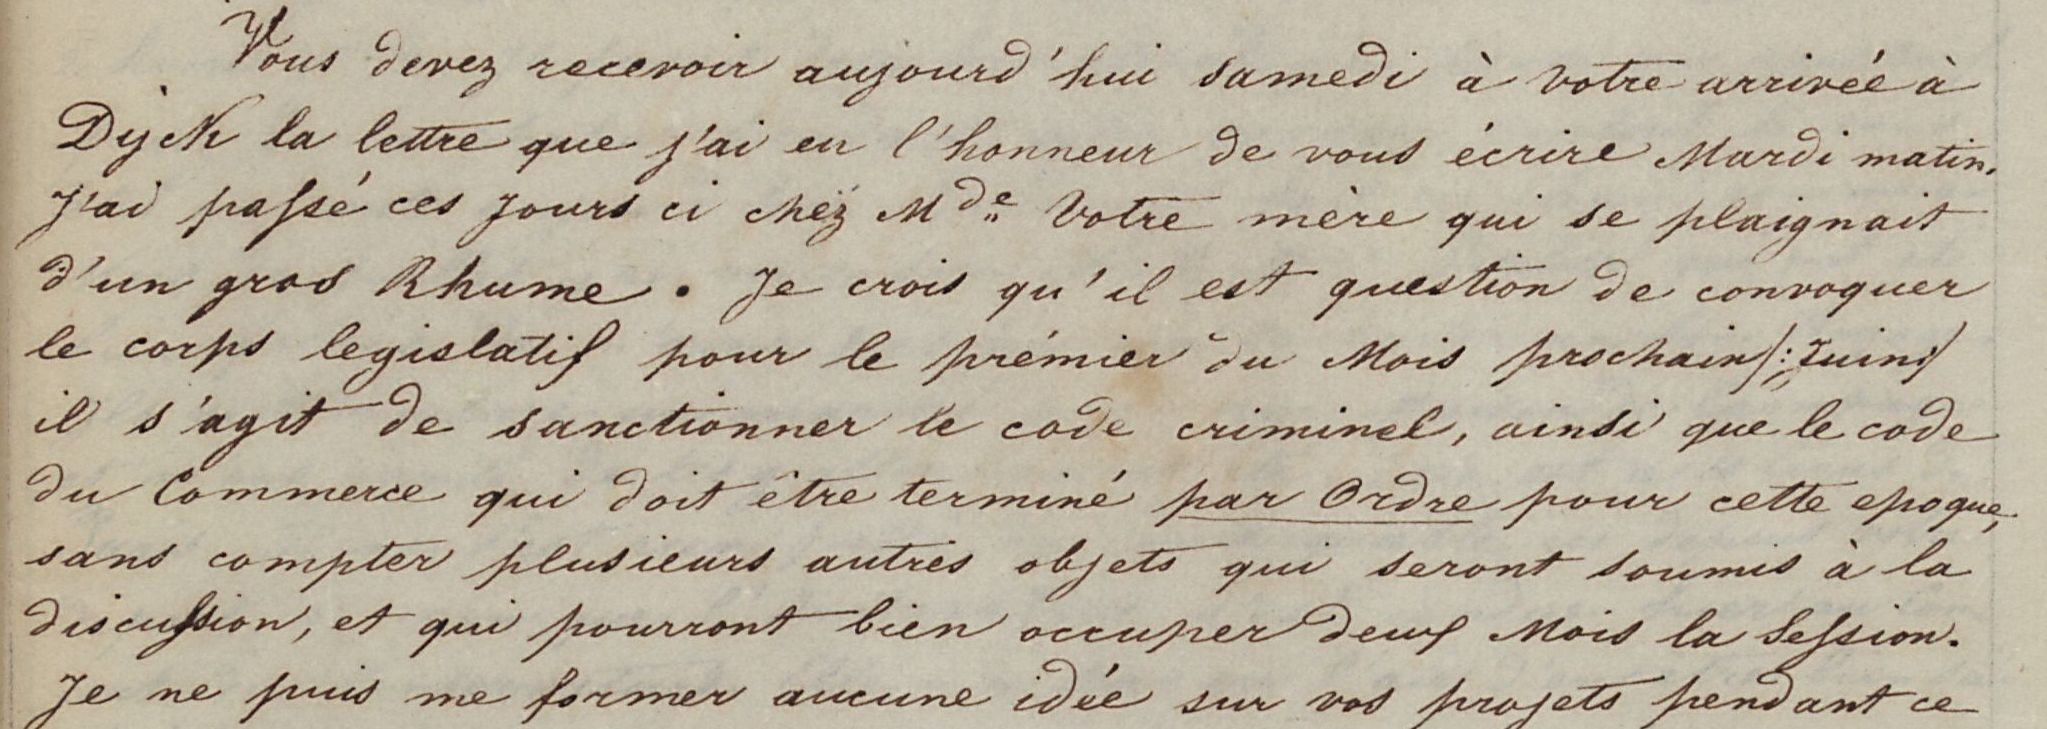 Vous devez recevoir aujourd'hui samedi à votre arrivée à
Dÿck la lettre que j'ai eu l'honneur de vous écrire Mardi matin.
J'ai passé ces jours ci chëz Mde votre mère qui se plaignait
d'un gros Rhume. Je crois qu'il est question de convoquer
le corps legislatif pour le prémier du Mois prochain /: Juin :/
il s'agit de sanctionner le code criminel, ainsi que le code
du Commerce qui doit être terminé par Ordre pour cette epoque,
sans compter plusieurs autres objets qui seront soumis à la
discussion, et qui pourront bien occuper deux Mois la Session.
Je ne puis me former aucune idée sur vos projets pendant ce